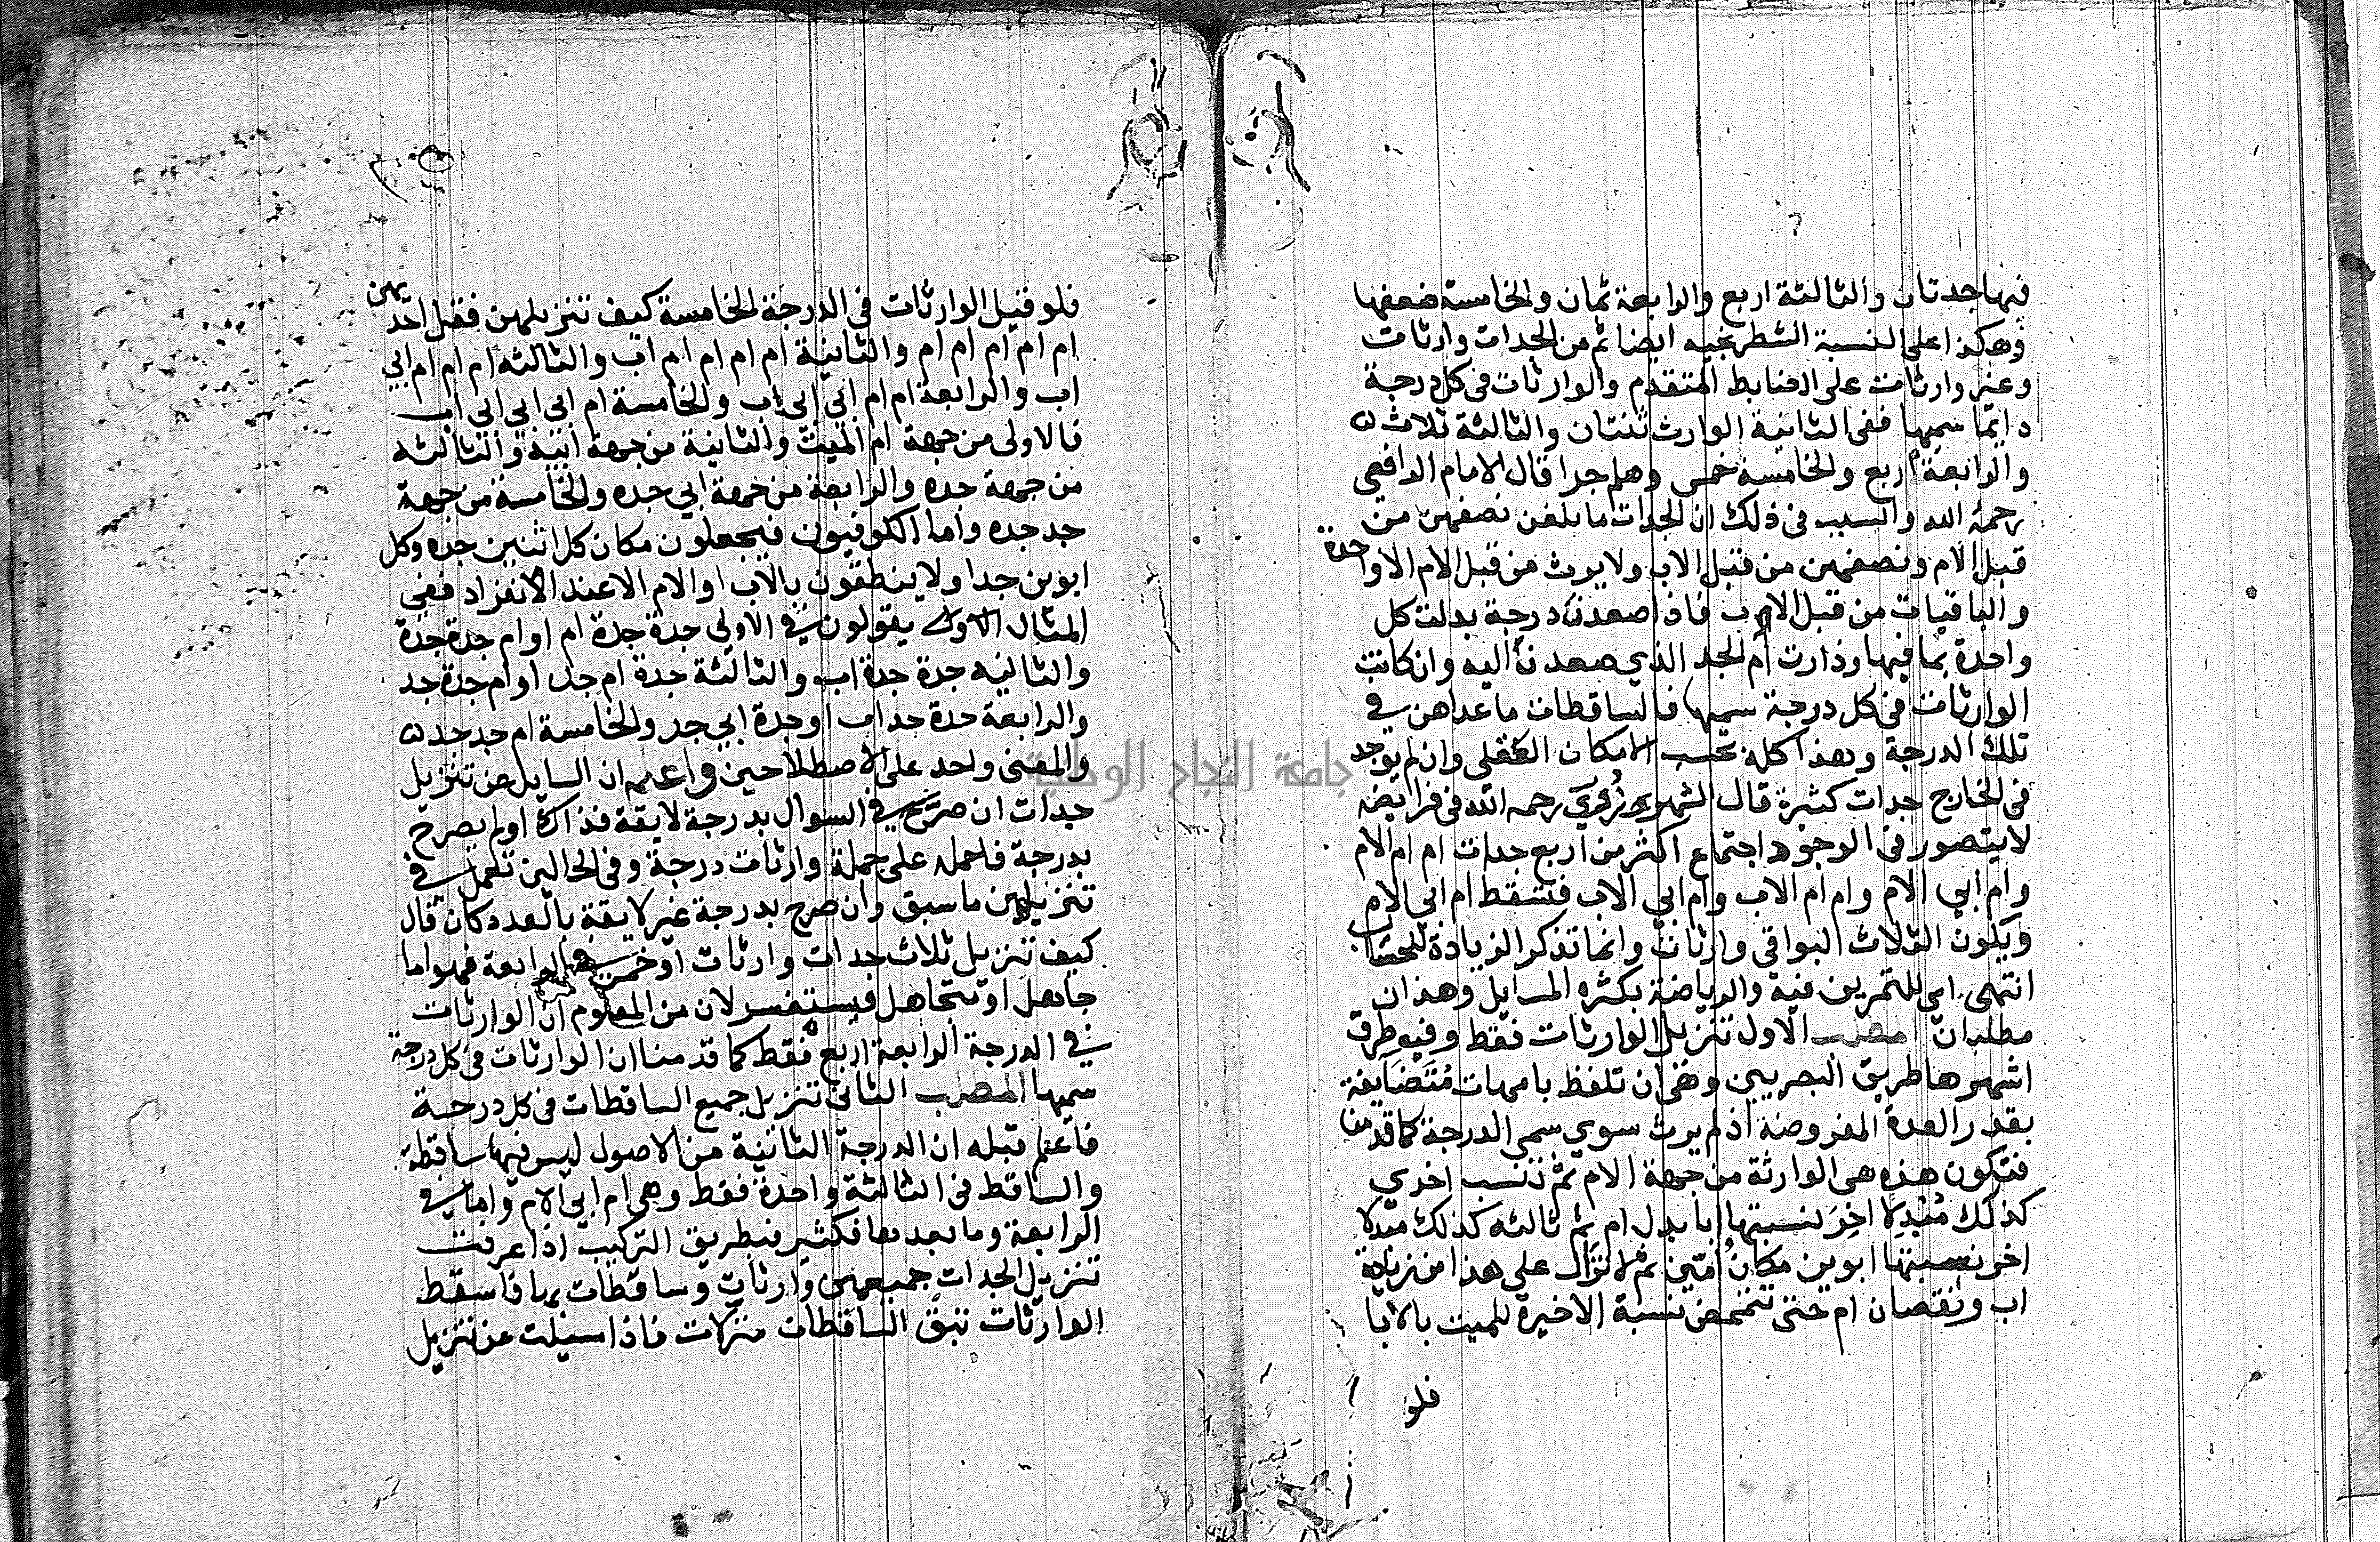 فيها جدتان والثالثة اربع والرابعة ثمان والخامسة ضعفها
وهكذا على النسبة الشطرنجيه ايضا ثم من الجدات وارثات
وغير وارثات على الضابط المتقدم والوارثات في كل درجة
دايما سميها ففي الثانية الوارث ثنتان والثالثة ثلاث
والرابعة اربع والخامسة خمس وهلم جرا قال الامام الرافعي
رحمه الله والسبب في ذلك ان الجدات ما بلغن نصفهن من
قبل الام ونصفهن من قبل الاب ولا يرث من قبل الام الا واحدة
والباقيات من قبل الاب فاذا صعدنا درجة بدلت كل
واحدة بما فيها وزارت ام الجد الذي صعدنا اليه وان كانت
الوارثات في كل درجة سميها فالساقطات ما عداهن في
تلك الدرجة وهذا كله بحسب الامكان العقلي وان لم يوجد
في الخارج جدات كثيرة قال السهروردي رحمه الله في فرايضه
لا يتصور في الوجود اجتماع اكثر من اربع جدات ام ام الام
وام ابي الام وام ام الاب وام ابي الاب فتسقط ام ابي الام
ويكون الثلاث البواقي وارثات وانما تذكر الزيادة للحساب
انتهى اي للتمرين فيه والرياضة بكثره المسايل وهذان
مطلبان المطلب الاول تنزيل الوارثات فقط وفيه طرق
اشهرها طريق البصريين وهي ان تلفظ بامهات متضايفة
بقدر العدة المفروضة اذ لم يرث سوي سمي الدرجة كما قدمنا
فتكون هذه هي الوارثة من جهة الام ثم تنسب اخري
كذلك مبدلا اخر نسبتها ابا بدل ام ثم ثالثه كذلك مبدلا
اخر نسبتها ابوين مكان امين ثم لا تزال على هذا من زيادة
اب ونقصان ام حتى تتمحض نسبة الاخيرة للميت بالابا
فلو
فلو قيل الوارثات في الدرجة الخامسة كيف تنزيلهن فقل احديهن
ام ام ام ام ام والثانية ام ام ام ام اب والثالثه ام ام ام ابي
اب والرابعة ام ام ابي ابي اب والخامسة ام ابي ابي ابي اب
فالاولى من جهة ام الميت والثانية من جهة ابيه والثالثه
من جهة جده والرابعة من جهة ابي جده والخامسة من جهة
جد جده واما الكوفيون فيجعلون مكان كل اثنين جده وكل
ابوين جدا ولا ينطقون بالاب او الام الا عند الانفراد ففي
المثال الاول يقولون في الاولى جدة جدة ام او ام جدة جدة
والثانيه جدة جدة اب والثالثة جدة ام جد او ام جدة جد
والرابعة جدة جد اب او جدة ابي جد والخامسة ام جد جد
والمعنى واحد على الاصطلاحين واعلم ان السايل عن تنزيل
جدات ان صرح في السوال بدرجة لايقة فذاك او لم يصرح
بدرجة فاحمله على جملة وارثات درجة وفي الحالين تعمل في
تنزيلهن ما سبق وان صرح بدرجة غير لايقة بالعدد كان قال
كيف تنزيل ثلاث جدات وارثات او خمس في الرابعة فهو اما
جاهل او متجاهل فيستفسر لان من المعلوم ان الوارثات
في الدرجة الرابعة اربع فقط كما قدمنا ان الوارثات في كل درجة
سميها المطلب الثاني تنزيل جميع الساقطات في كل درجة
فاعلم قبله ان الدرجة الثانية من الاصول ليس فيها ساقطة
والساقط في الثالثة واحدة فقط وهي ام ابي الام واما في
الرابعة وما بعدها فكثير فبطريق التركيب اذا عرفت
تنزيل الجدات جميعهن وارثات وساقطات بها فاسقط
الوارثات تبق الساقطات منزلات فاذا سيلت عن تنزيل
جامعة النجاح الوطنية